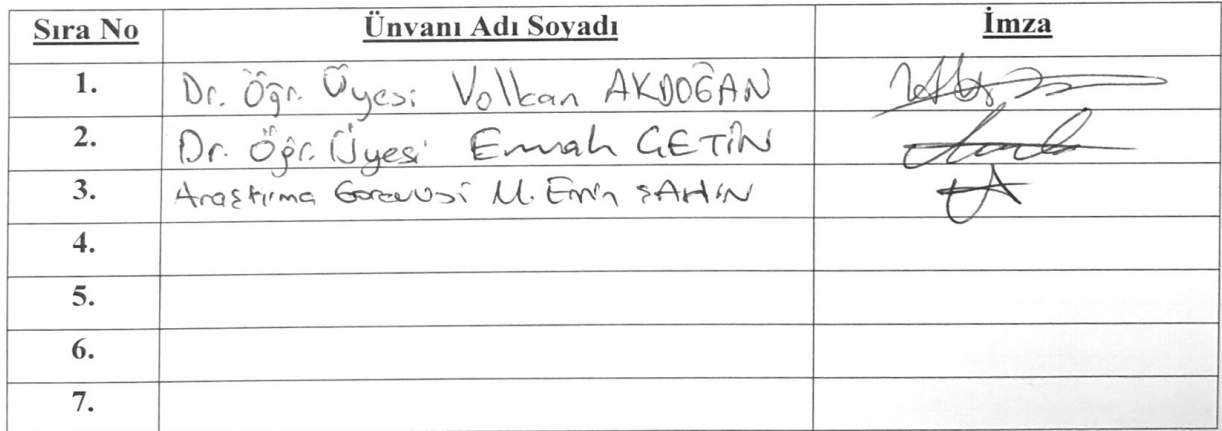 Sıra No Ünvanı Adı Soyadı İmza
1. Dr. Öğr. Üyesi Volkan AKDOĞAN
2. Dr. Öğr. Üyesi Emrah ÇETİN
3. Araştırma Görevlisi M. Emin ŞAHİN
4.
5.
6.
7.